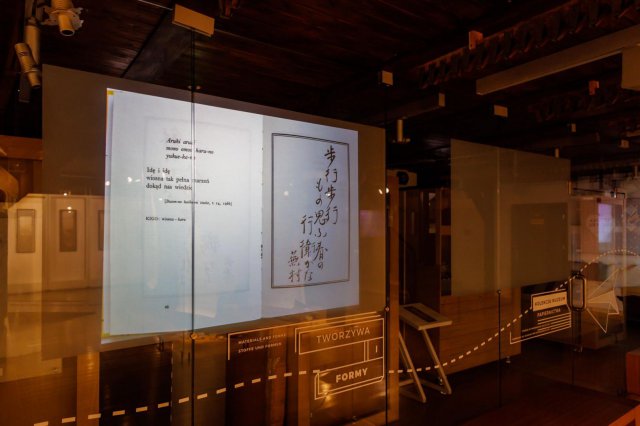 Aruki aruki
mono omou haru-no
Idę i idę
wiosna tak pełna marzeń
dokąd nas wiedzie
KIGO: wiosna - haru
歩行歩行
もの思ふ春の
行衛かな
蕪村
MATERIALS AND FORMS
STOFFE UND FORMEN
TWORZYWA
I
FORMY
KOLEKCJE MUZEUM
PAPIERNICTWA